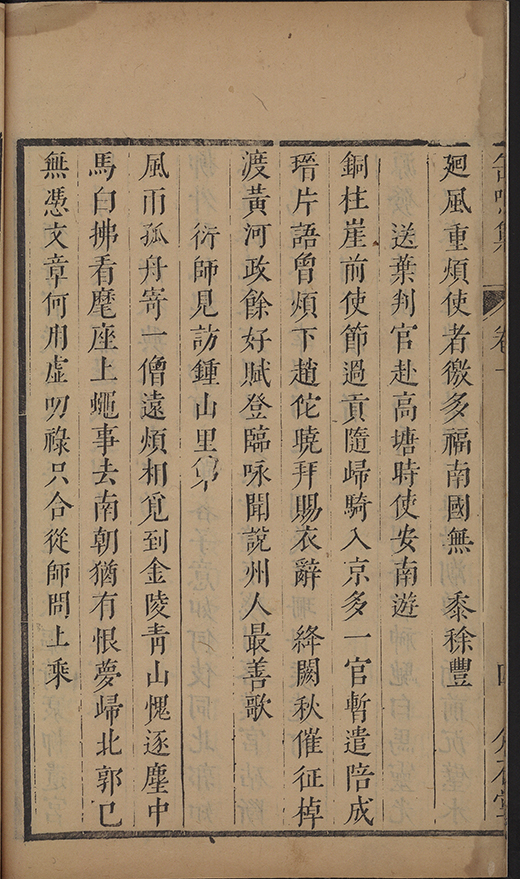 廻風重煩使者徼多福南國無　黍稌豐
送葉判官赴高塘時使安南遊
銅柱崖前使節過貢隨歸騎入京多一官暫遣陪成
瑨片語曾煩下趙佗曉拜賜衣辭　絳闕秋催征棹
渡黃河政餘好賦登臨咏聞說州人最善歌
衍師見訪鍾山里第
風雨孤舟寄一僧遠煩相覓到金陵靑山愧逐塵中
馬白拂看麾座上蠅事去南朝猶有恨夢歸北郭已
無憑文章何用虛叨祿只合從師問上乘